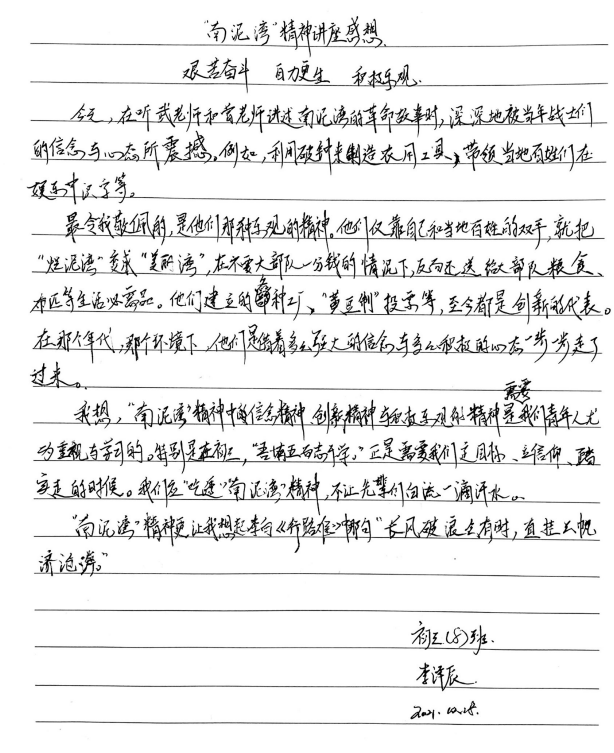 "南泥湾"精神讲座感想
艰苦奋斗 自力更生 积极乐观
今天，在听武老师和宫老师讲述南泥湾的革命故事时，深深地被当年战士们
的信念与心态所震撼。例如，利用破钟来制造农用工具，带领当地百姓们在
硬东中识字等。
最令我敬佩的，是他们那种乐观的精神。他们仅靠自己和当地百姓的双手，就把
"烂泥湾"变成"美丽湾"，在不要大部队一分钱的情况下，反向还送给大部队粮食、
布匹等生活必需品。他们建立的种工厂、"黄豆制"投票等，至今都是创新的代表。
在那个年代，那个环境下，他们是凭着多么强大的信念与多么积极的心态一步一步走了
过来。
我想，"南泥湾"精神中的信念精神 创新精神 与积极乐观的精神是我们青年人尤
需要
为重视与学习的。特别是在初三，"吾十有五而志于学。"正是需要我们定目标、立信仰、踏
实走的时候。我们应"吃透"南泥湾"精神，不让先辈们白流一滴汗水。
"南泥湾"精神更让我想起李白《行路难》中那句"长风破浪会有时，直挂云帆
济沧海。"
初三(8)班.
李泽辰
2021.10.28.